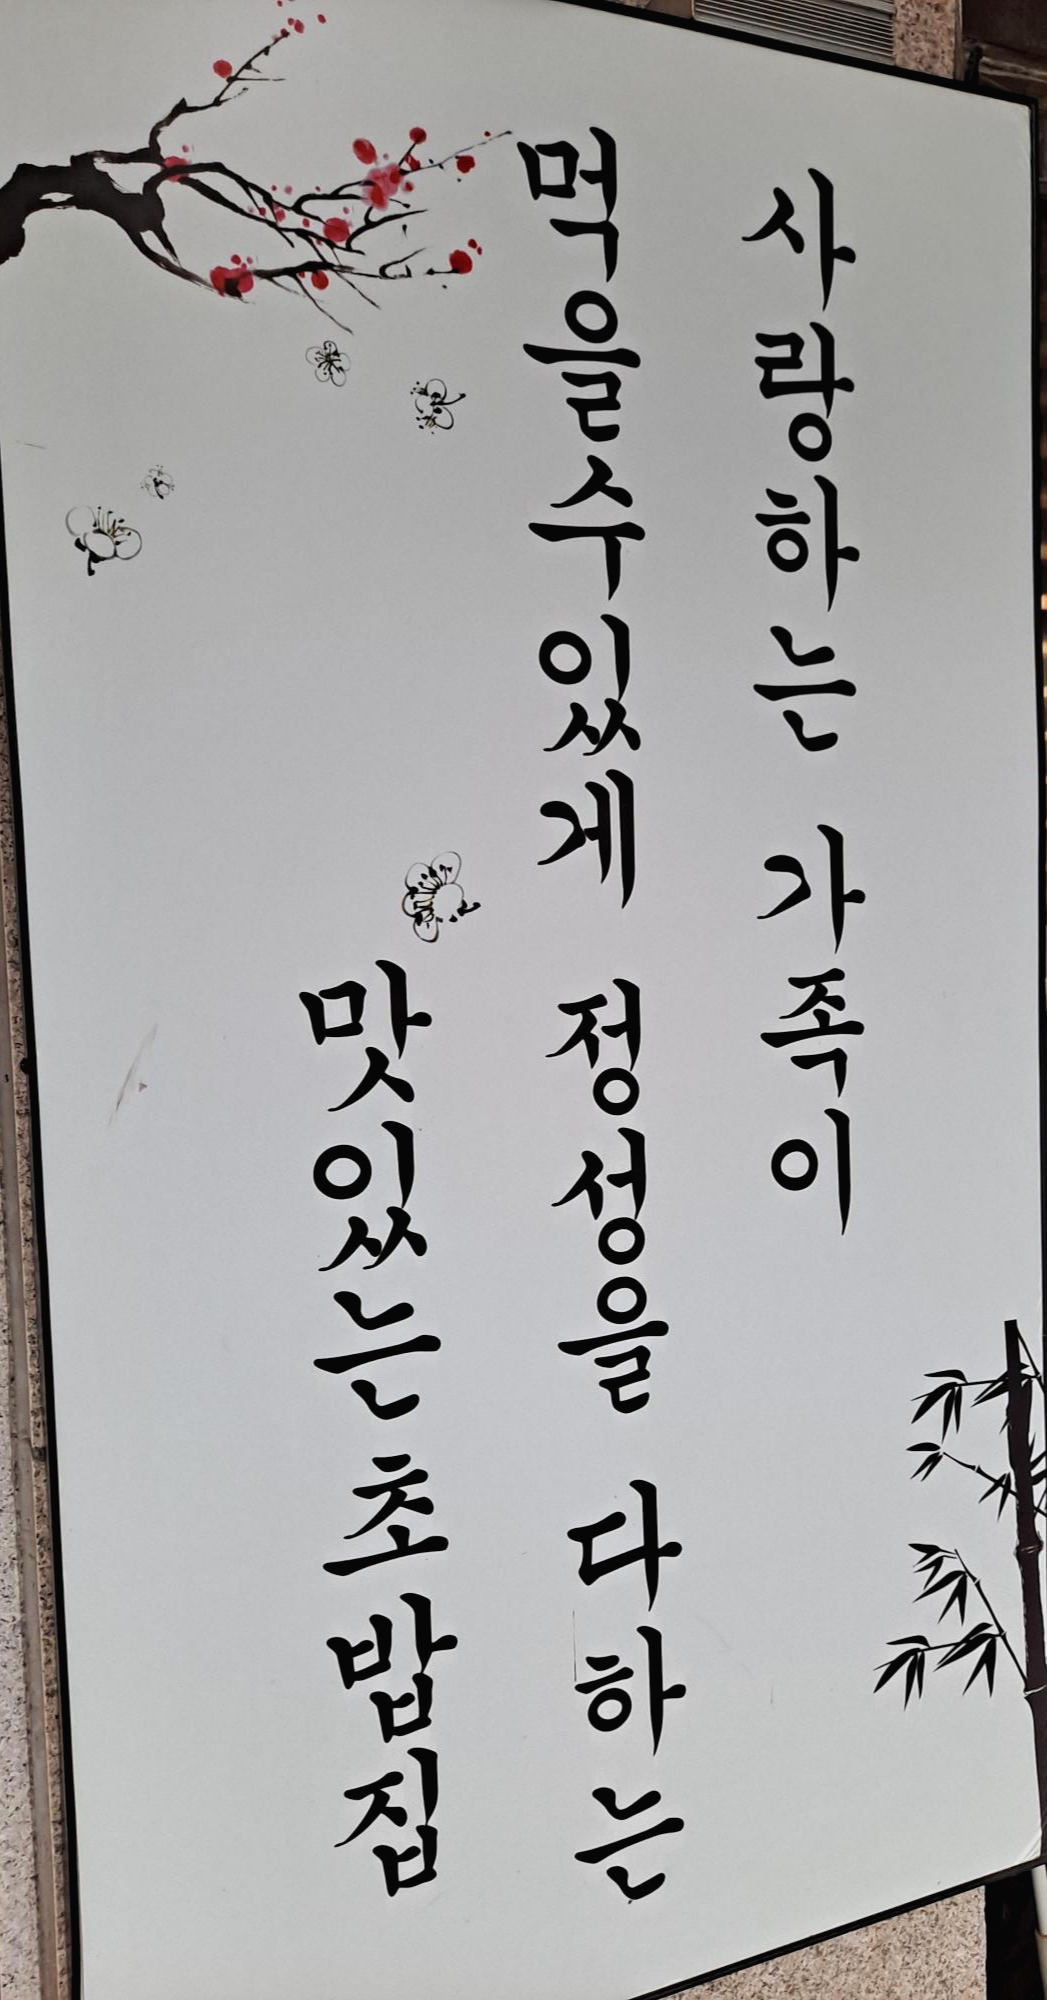 사랑하는 가족이
먹을수있게 정성을 다하는
맛있는초밥집